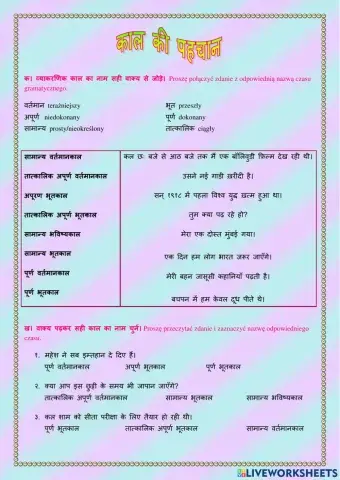 काल की पहचान
क। व्याकरणिक काल का नाम सही वाक्य से जोड़ें। Proszę połączyć zdanie z odpowiednią nazwą czasu
gramatycznego.
वर्तमान teraźniejszy भूत przeszły
अपूर्ण niedokonany पूर्ण dokonany
सामान्य prosty/nieokreślony तात्कालिक ciągły
सामान्य वर्तमानकाल
तात्कालिक अपूर्ण वर्तमानकाल
अपूरण भूतकाल
तात्कालिक अपूर्ण भूतकाल
सामान्य भविष्यकाल
सामान्य भूतकाल
पूर्ण वर्तमानकाल
पूर्ण भूतकाल
कल छः बजे से आठ बजे तक मैं एक बॉलिवुडी फ़िल्म देख रही थी।
उसने नई गाड़ी ख़रीदी है।
सन् १९१८ में पहला विश्व युद्ध ख़त्म हुआ था।
तुम क्या पढ़ रहे हो?
मेरा एक दोस्त मुंबई गया।
एक दिन हम लोग भारत ज़रूर जाएँगे।
मेरी बहन जासूसी कहानियाँ पढ़ती है।
बचपन में हम केवल दूध पीते थे।
ख। वाक्य पढ़कर सही काल का नाम चुनें। Proszę przeczytać zdanie i zaznaczyć nazwę odpowiedniego
czasu.
१. महेश ने सब इम्तहान दे दिए हैं।
पूर्ण वर्तमानकाल अपूर्ण भूतकाल पूर्ण भूतकाल
२. क्या आप इस छुट्टी के समय भी जापान जाएँगे?
तात्कालिक अपूर्ण वर्तमानकाल सामान्य भूतकाल सामान्य भविष्यकाल
३. कल शाम को सीता परीक्षा के लिए तैयार हो रही थी।
पूर्ण भूतकाल तात्कालिक अपूर्ण भूतकाल सामान्य वर्तमानकाल
LIVEWORKSHEETS